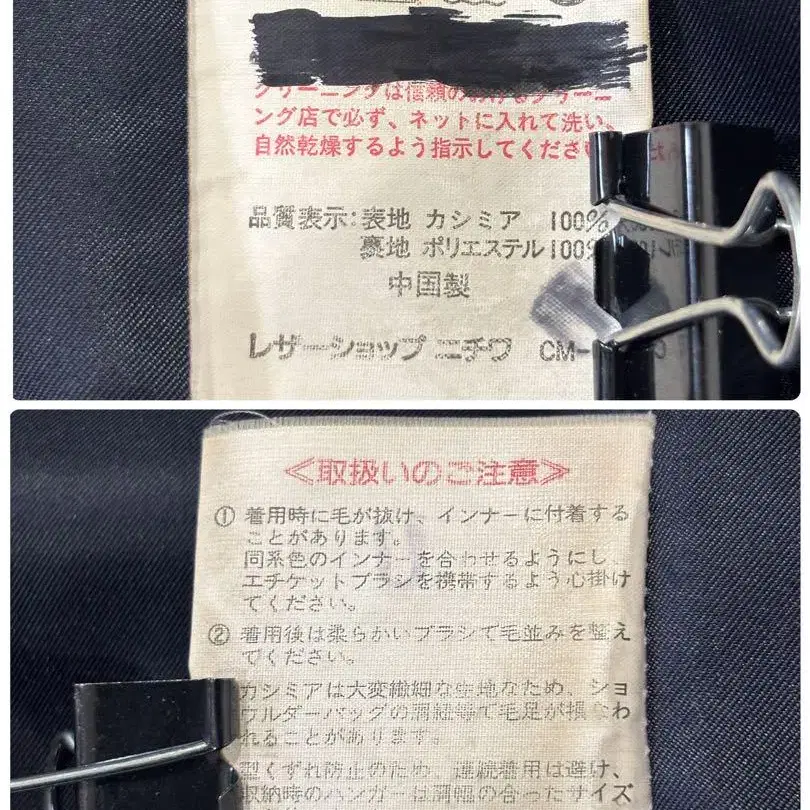 クリーニングは信頼のおけるクリーニ
ング店で必ず、ネットに入れて洗い、
自然乾燥するよう指示してください
品質表示:表地 カシミア 100%
裏地 ポリエステル100%
中国製
レザーショップ ニチワ CM-
≪取扱いのご注意≫
① 着用時に毛が抜け、インナーに付着する
ことがあります。
同系色のインナーを合わせるようにし
エチケットブラシを携帯するよう心掛け
てください。
② 着用後は柔らかいブラシで毛並みを整え
でください。
カシミアは大変繊細な生地なため、ショ
ウルダーバッグの肩紐等で毛足が損なわ
れることがあります。
型くずれ防止のため、連続着用は避け、
収納時のハンガーは肩幅の合ったサイズ